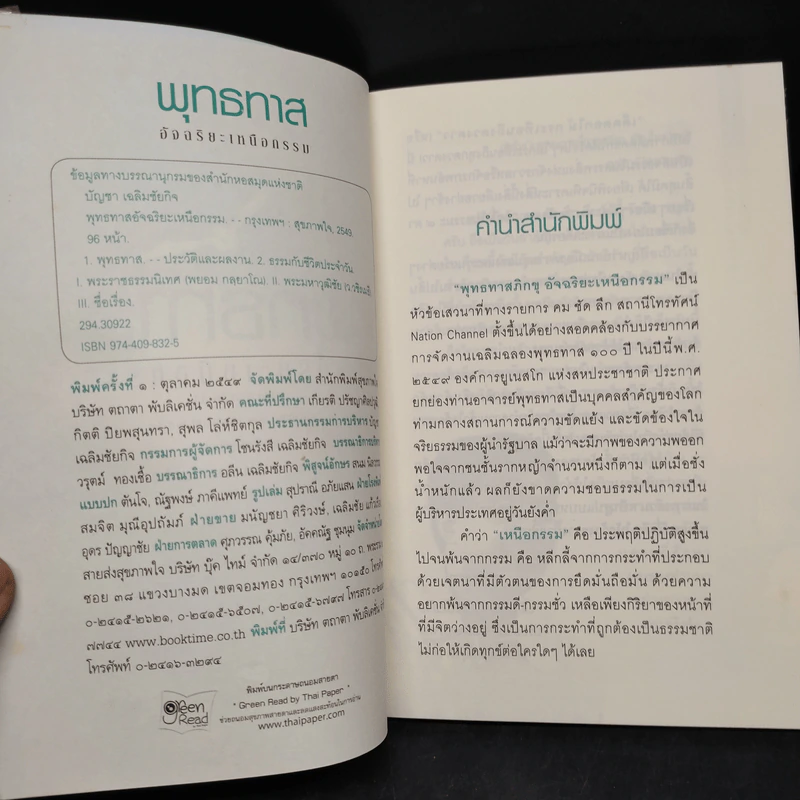 พุทธทาส
อัจฉริยะเหนือกรรม
ข้อมูลทางบรรณานุกรมของสำนักหอสมุดแห่งชาติ
บัญชา เฉลิมชัยกิจ
พุทธทาสอัจฉริยะเหนือกรรม. - - กรุงเทพฯ : สุขภาพใจ, 2549.
96 หน้า.
1. พุทธทาส. - - ประวัติและผลงาน. 2. ธรรมกับชีวิตประจำวัน
I. พระราชธรรมนิเทศ (พยอม กลฺยาโณ). II. พระมหาวุฒิชัย (ว.วชิรเมธี
III. ชื่อเรื่อง.
294.30922
ISBN 974-409-832-5
พิมพ์ครั้งที่ ๑ : ตุลาคม ๒๕๔๙ จัดพิมพ์โดย สำนักพิมพ์สุขภาพใจ
บริษัท ตถาตา พับลิเคชั่น จำกัด คณะที่ปรึกษา เกียรติ ปรัชญาศิลปวุฒิ
กิตติ ปิยพสุนทรา, สุพล โล่ห์ชิตกุล ประธานกรรมการบริหาร บัญชา
เฉลิมชัยกิจ กรรมการผู้จัดการ โชนรังสี เฉลิมชัยกิจ บรรณาธิการบริหาร
วรุตม์ ทองเชื้อ บรรณาธิการ อลีน เฉลิมชัยกิจ พิสูจน์อักษร สนม
แบบปก ตันโจ, ณัฐพงษ์ ภาคีแพทย์ รูปเล่ม สุปราณี อภัยแสน
สมจิต มุณีอุปถัมภ์ ฝ่ายขาย มนัญชยา ศิริวงษ์, เฉลิมชัย
อุดร ปัญญาชัย ฝ่ายการตลาด ศุภวรรณ คุ้มภัย, อัคคณัฐ ชุมนุม
สายส่งสุขภาพใจ บริษัท บุ๊ค ไทม์ จำกัด ๑๔/๓๗๐ หมู่ ๑๐ ถ. พระราม
ซอย ๓๘ แขวงบางมด เขตจอมทอง กรุงเทพฯ ๑๐๑๕๐
๐-๒๔๑๕-๒๖๒๑, ๐-๒๔๑๕-๖๕๐๗, ๐-๒๔๑๕-๖๗๙๗ โทรสาร
๗๗๔๔ www.booktime.co.th พิมพ์ที่ บริษัท ตถาตา พับลิเคชั่น
โทรศัพท์ ๐-๒๔๑๖-๓๒๙๔
Green
Read
พิมพ์บนกระดาษถนอมสายตา
" Green Read by Thai Paper "
ช่วยถนอมสุขภาพสายตาและลดแสงสะท้อนในการอ่าน
www.thaipaper.com
คำนำสำนักพิมพ์
"พุทธทาสภิกขุ อัจฉริยะเหนือกรรม" เป็น
หัวข้อเสวนาที่ทางรายการ คม ชัด ลึก สถานีโทรทัศน์
Nation Channel ตั้งขึ้นได้อย่างสอดคล้องกับบรรยากาศ
การจัดงานเฉลิมฉลองพุทธทาส ๑๐๐ ปี ในปีนี้พ.ศ.
๒๕๔๙ องค์การยูเนสโก แห่งสหประชาชาติ ประกาศ
ยกย่องท่านอาจารย์พุทธทาสเป็นบุคคลสำคัญของโลก
ท่ามกลางสถานการณ์ความขัดแย้ง และขัดข้องใจใน
จริยธรรมของผู้นำรัฐบาล แม้ว่าจะมีภาพของความพออก
พอใจจากชนชั้นรากหญ้าจำนวนหนึ่งก็ตาม แต่เมื่อชั่ง
น้ำหนักแล้ว ผลก็ยังขาดความชอบธรรมในการเป็น
ผู้บริหารประเทศอยู่วันยังค่ำ
คำว่า "เหนือกรรม" คือ ประพฤติปฏิบัติสูงขึ้น
ไปจนพ้นจากกรรม คือ หลีกลี้จากการกระทำที่ประกอบ
ด้วยเจตนาที่มีตัวตนของการยึดมั่นถือมั่น ด้วยความ
อยากพ้นจากกรรมดี-กรรมชั่ว เหลือเพียงกิริยาของหน้าที่
ที่มีจิตว่างอยู่ ซึ่งเป็นการกระทำที่ถูกต้องเป็นธรรมชาติ
ไม่ก่อให้เกิดทุกข์ต่อใครใดๆ ได้เลย